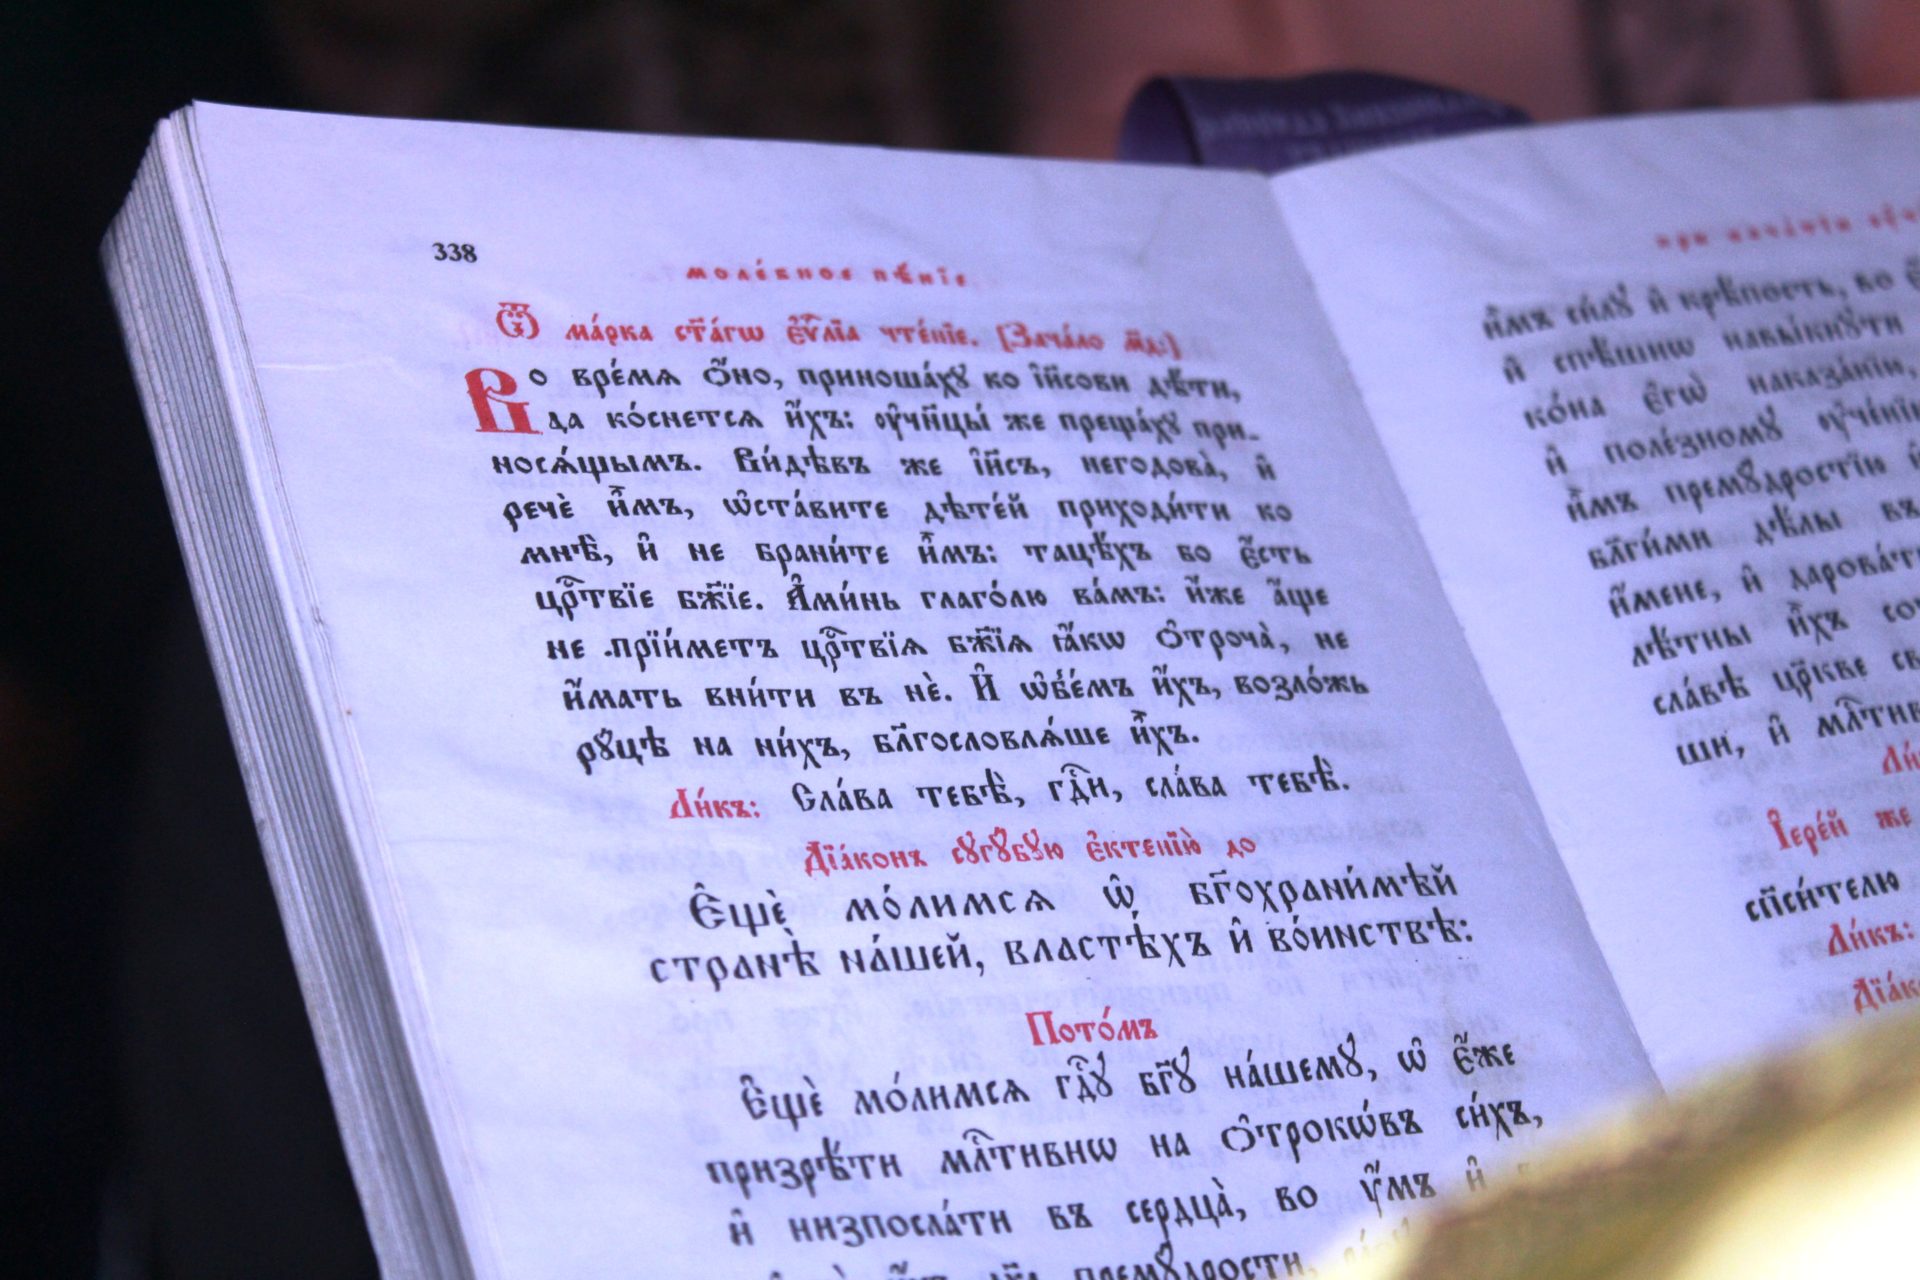 338
моле́бное пѣ́нїе
Ѿ ма́рка ст҃а́гѡ є҆ѵⷢ҇лїа чте́нїе. (Зача́ло м҃д:)
Во вре́мѧ ѻ҆́но, приноша́хꙋ ко і҆и҃сови дѣ́ти,
да ко́снетсѧ и҆́хъ: ᲂу҆чн҃цы́ же преща́хꙋ при-
носѧ́щымъ. Ви́дѣвъ же і҆и҃съ, негодова̀, и҆
речѐ и҆̀мъ, ѡ҆ста́вите дѣте́й приходи́ти ко
мнѣ̀, и҆ не брани́те и҆̀мъ: тацѣ́хъ бо є҆́сть
црⷭ҇твїе бж҃їе. А҆ми́нь глаго́лю ва́мъ: и҆́же а҆́ще
не прїи́метъ црⷭ҇твїѧ бж҃їѧ ꙗ҆́кѡ ѻ҆троча̀, не
и҆́мать вни́ти въ нѐ. И҆ ѡ҆б̾е́мъ и҆̀хъ, возло́жь
рꙋ́цѣ на ни́хъ, бл҃гословлѧ́ше и҆̀хъ.
Ли́къ: Сла́ва тебѣ̀, гдⷭ҇и, сла́ва тебѣ̀.
Дїа́конъ сꙋгꙋ́бꙋю є҆ктенїю̀ до
Є҆щѐ мо́лимсѧ ѡ҆ бг҃охрани́мѣй
странѣ̀ на́шей, властѣ́хъ и҆ во́инствѣ:
Пото́мъ
Є҆щѐ мо́лимсѧ гдⷭ҇ꙋ бг҃ꙋ на́шемꙋ, ѡ҆ є҆́же
призрѣ́ти млⷭ҇тивнѡ на ѻ҆трокѡ́въ си́хъ,
и҆ низпосла́ти въ сердца̀, во ᲂу҆́мъ и҆
премꙋ́дрости,
при нача́тїи
и҆̀мъ си́лꙋ и҆ крѣ́пость, во
и҆ спѣ́шнѡ навы́кнꙋти
ко́на є҆гѡ̀ наказа́нїи,
и҆ поле́зномꙋ ᲂу҆че́нїю
и҆̀мъ премꙋ́дростїю
бл҃ги́ми дѣ́лы въ
и҆́мене, и҆
лѣ́тны и҆̀хъ
сла́вѣ цр҃кве
ши, и҆
І҆ере́й же
сп҃си́телю
Ли́къ: